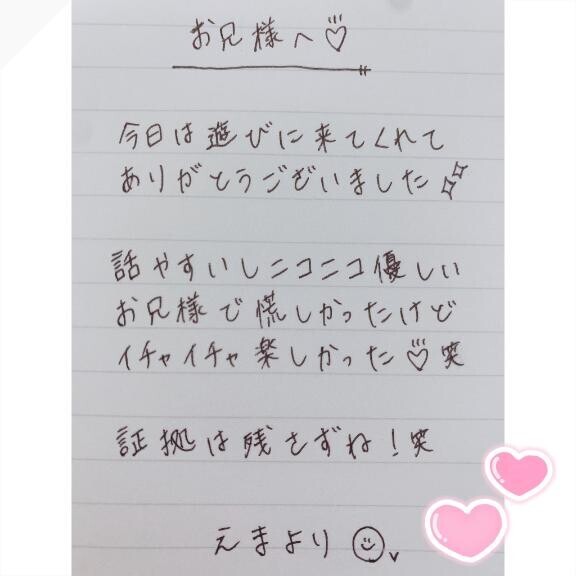 お兄様へ♡
今日は遊びに来てくれて
ありがとうございました
話やすいしニコニコ優しい
お兄様で慌しかったけど
イチャイチャ楽しかった♡笑
証拠は残さずね！笑
えまより